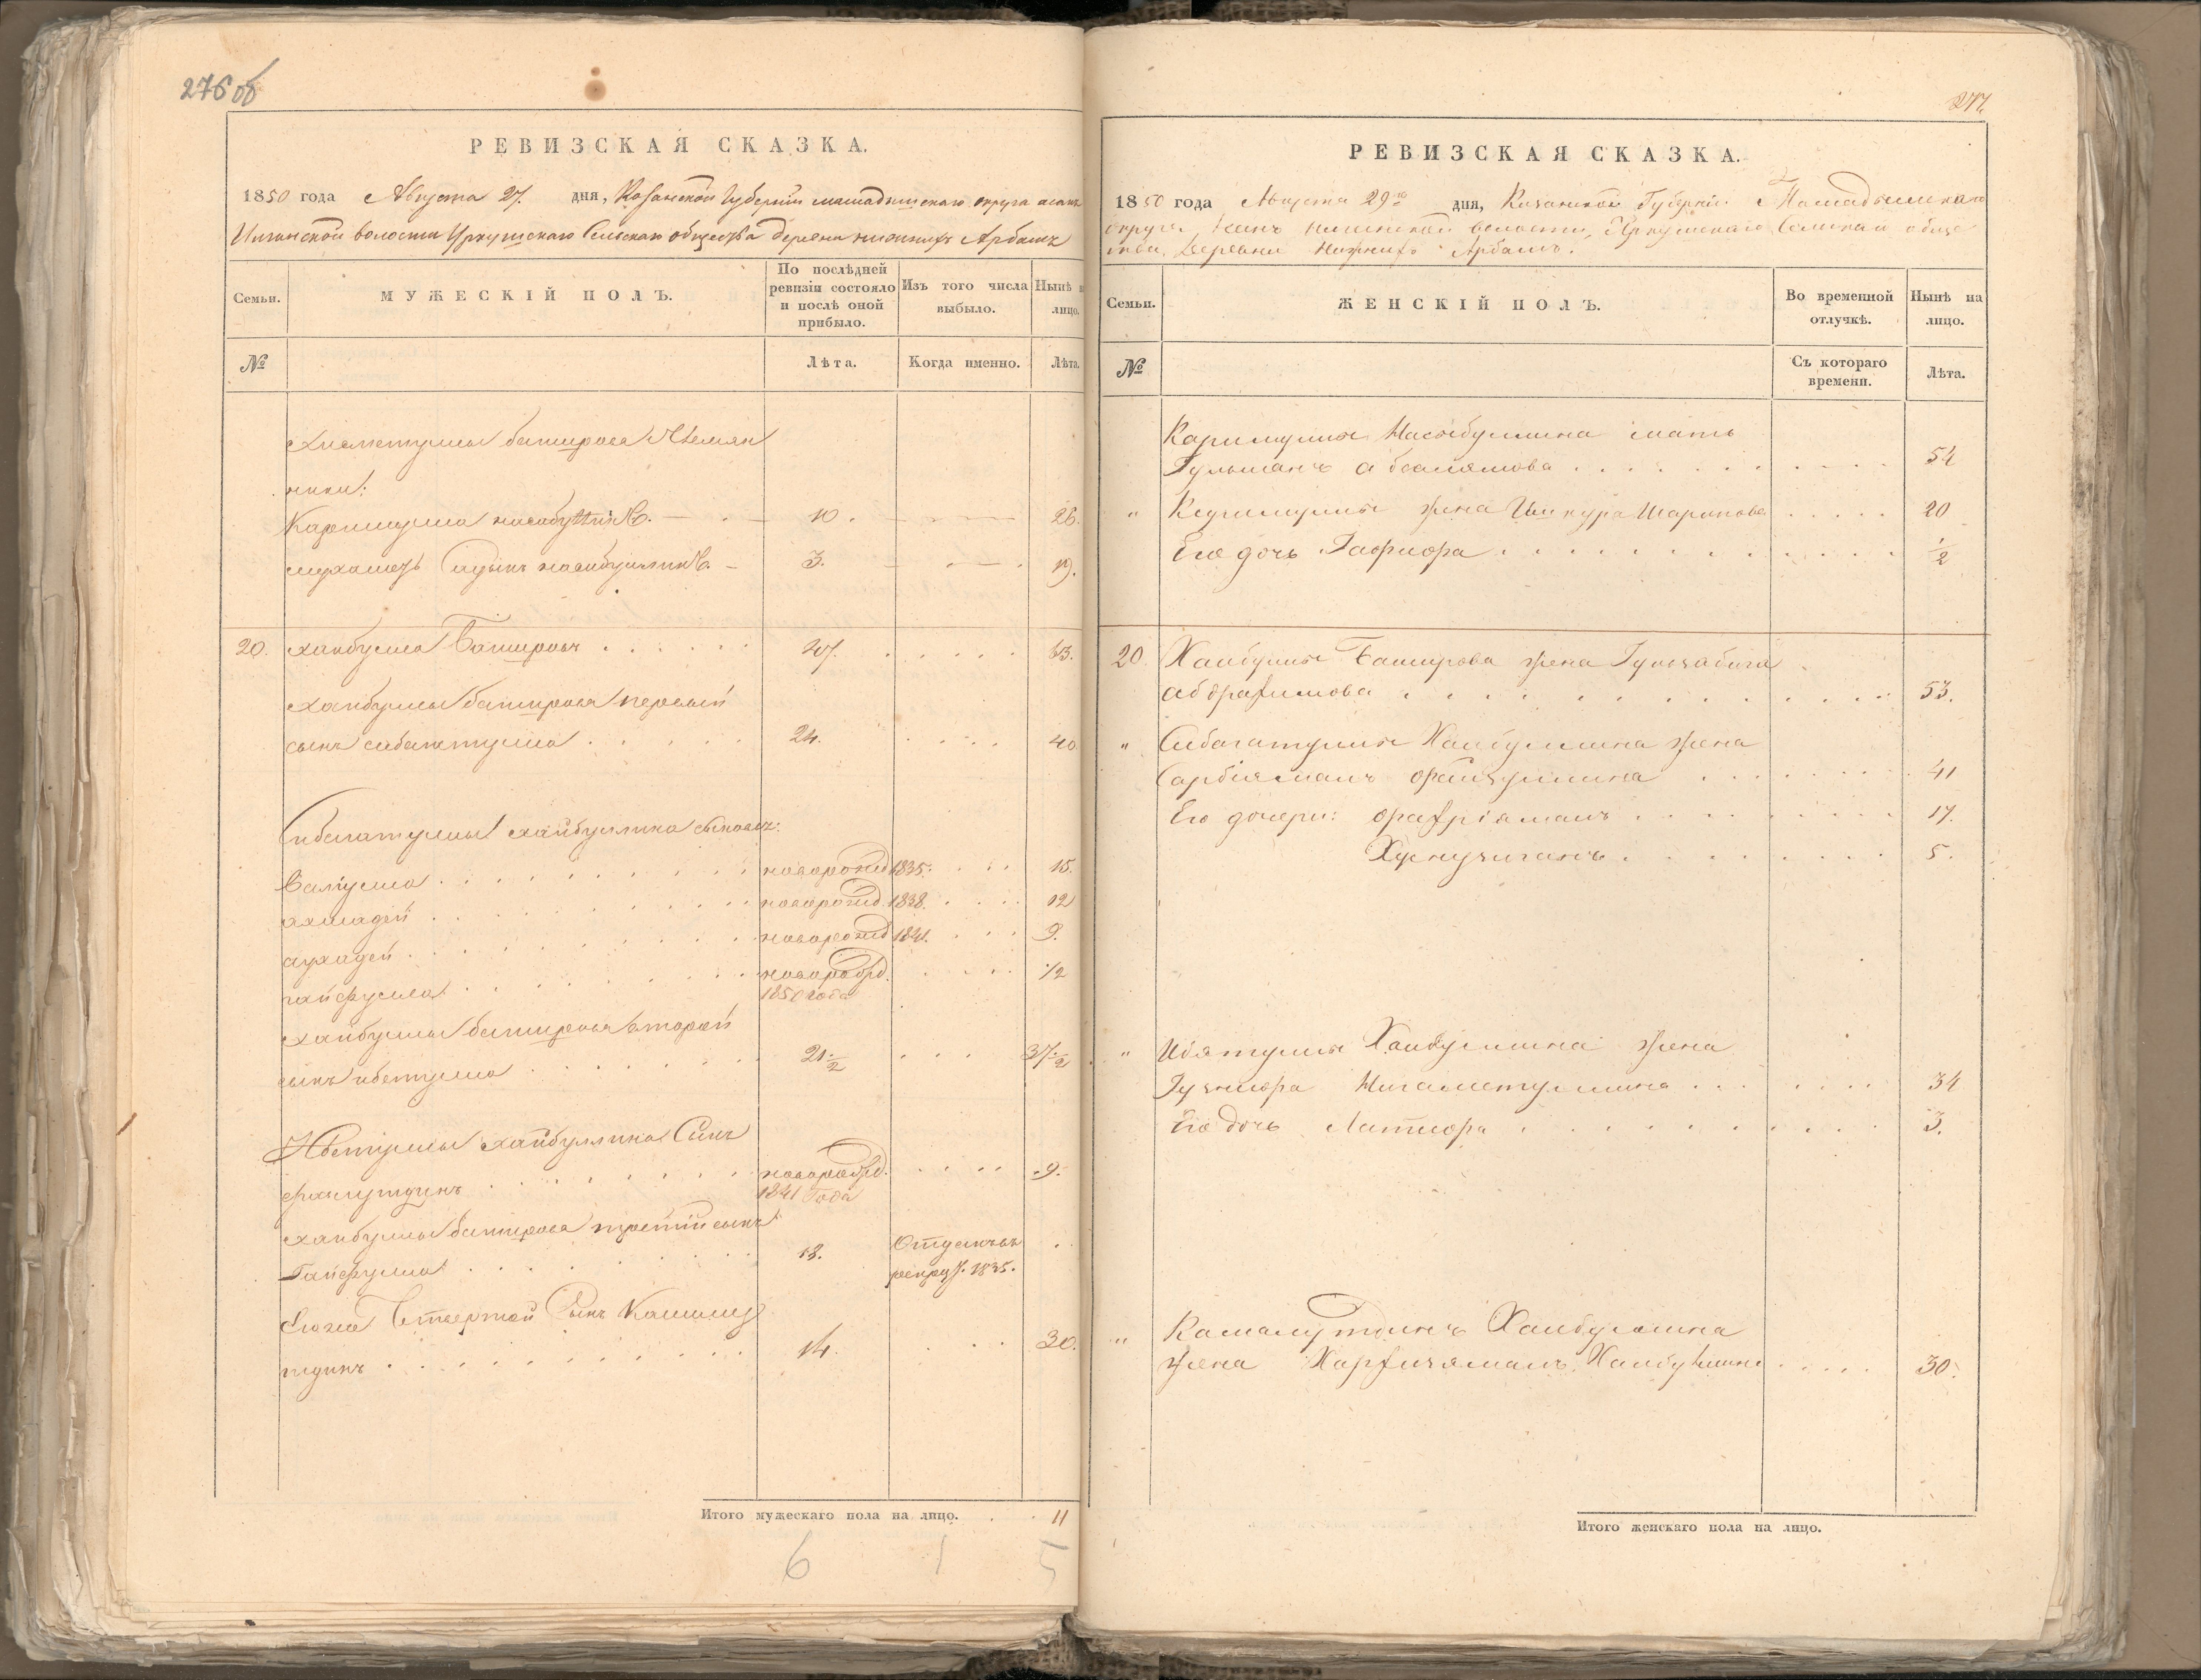 276 об
РЕВИЗСКАЯ СКАЗКА.
1850 года Августа 27. дня, Казанской Губерніи мамадышскаго округа асанъ
Илгинской волости Уркушскаго Сельскаго общества деревни нижнихъ Арбашъ
Семьи.
МУЖЕСКІЙ ПОЛЪ.
По послѣдней ревизіи состояло и послѣ оной прибыло.
Изъ того числа выбыло.
Нынѣ на лицо.
№
Лѣта.
Когда именно.
Лѣта.
хисметуллы баширова племян
ники:
Каримулла насибуллинъ. 10. 26.
мухамедъ Садыкъ насибуллинъ. 3. 19.
20. хаибулла Башировъ 47. 63.
хаибуллы баширова первый
сынъ сибагатулла 24. 40
Сибагатуллы хайбуллина сыновья:
Валіулла новорожд 1835. 15.
ахмадей новорожд 1838. 12
ахадей новорожд 1841. 9.
гайфулла новорожд. 1/2
1850 года
хайбуллы баширова второй
сынъ ибетулла 21 1/2 37 1/2
Ибетуллы хайбуллина Сынъ
новорожд. 9.
1841 года
хаибуллы баширова третій сынъ
Гайфулла 18. Отданъ въ
рекруты. 1835.
Его же Четвертой Сынъ Камалу
тдинъ 14. 30.
Итого мужескаго пола на лицо. 11
6 1 5
277.
РЕВИЗСКАЯ СКАЗКА.
1850 года Августа 29го дня, Казанской Губерніи Мамадышскаго
округа волости, Уркушскаго Сельскаго обще
ства, Деревни Нижнихъ Арбашъ.
Семьи.
ЖЕНСКІЙ ПОЛЪ.
Во временной отлучкѣ.
Нынѣ на лицо.
№
Съ котораго времени.
Лѣта.
Каримуллы Насыбуллина мать
Гульшанъ 54
" Каримуллы жена Шарипова 20
Его дочь 1/2
20 Хаибуллы Баширова жена
абдрафикова 53.
" Сибагатуллы Хаибуллина жена
Сарбіямалъ файзуллина 41
Его дочери: 17.
5.
" Ибятуллы Хаибуллина жена
Нигаметуллина 34
Его дочь 3.
" Камалутдинъ Хаибуллина
жена 30.
Итого женскаго пола на лицо.